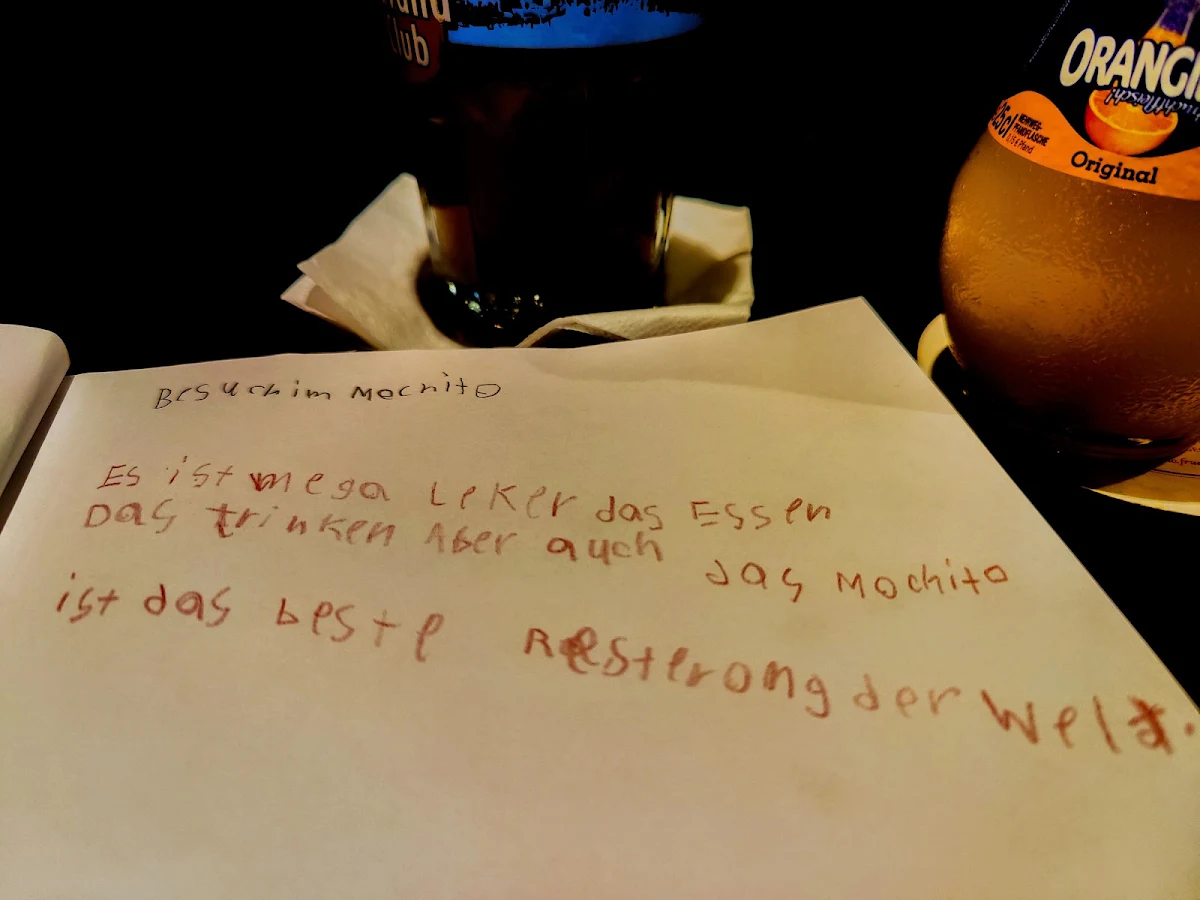 Club
ORANGI
Fruchtfleisch!
25cl
MEHRWEG-
PFANDFLASCHE
0,15 € Pfand
Original
Besuch im Mochito
Es ist mega Leker das Essen
Das trinken Aber auch das Mochito
ist das beste Resterong der Welt.